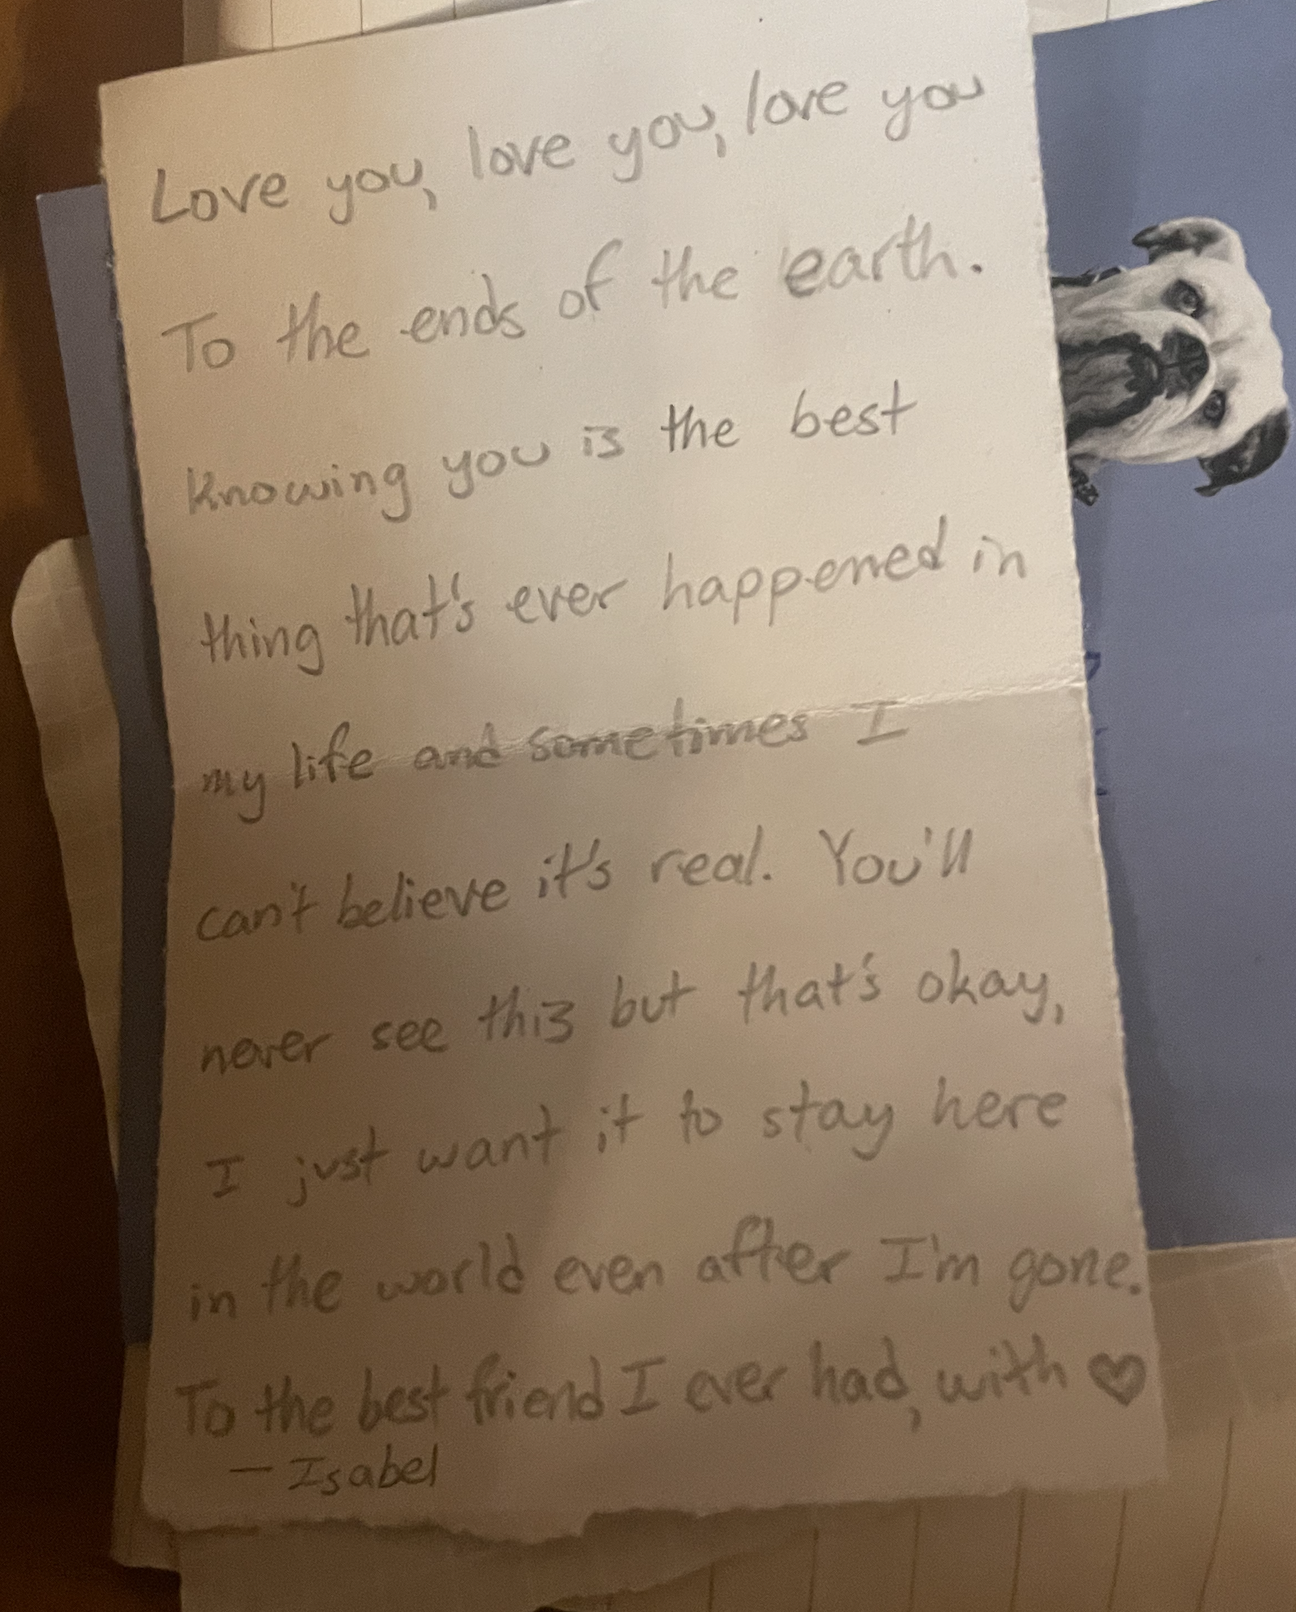 Love you, love you, love you
To the ends of the earth.
Knowing you is the best
thing that's ever happened in
my life and sometimes I
can't believe it's real. You'll
never see this but that's okay,
I just want it to stay here
in the world even after I'm gone.
To the best friend I ever had, with ♥
— Isabel